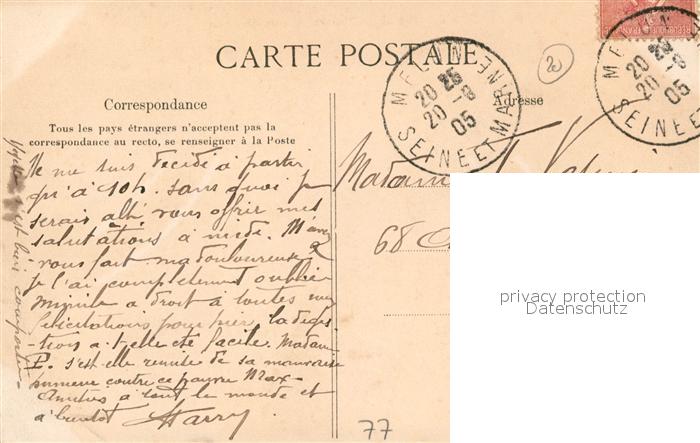 CARTE POSTALE
Correspondance
Tous les pays étrangers n'acceptent pas la
correspondance au recto, se renseigner à la Poste
Adresse
MELUN
20 25
20 -8
05
SEINE ET MARNE
MELUN
20 25
20 -8
05
SEINE ET MARNE
20
Je me suis décidé à partir
qu'à 10h. sans quoi je
serais allé vous offrir mes
salutations à midi. M'avez
vous fait ma douloureuse?
je l'ai complètement oubliée
Mimile a droit à toutes mes
félicitations pour hier. La diges
-tion a-t-elle été facile. Madame
P. s'est-elle remise de sa mauvaise
humeur contre ce pauvre Max
Amitiés à tout le monde et
à bientôt Harry
s'est bien comporté
Madame
68
77
privacy protection
Datenschutz